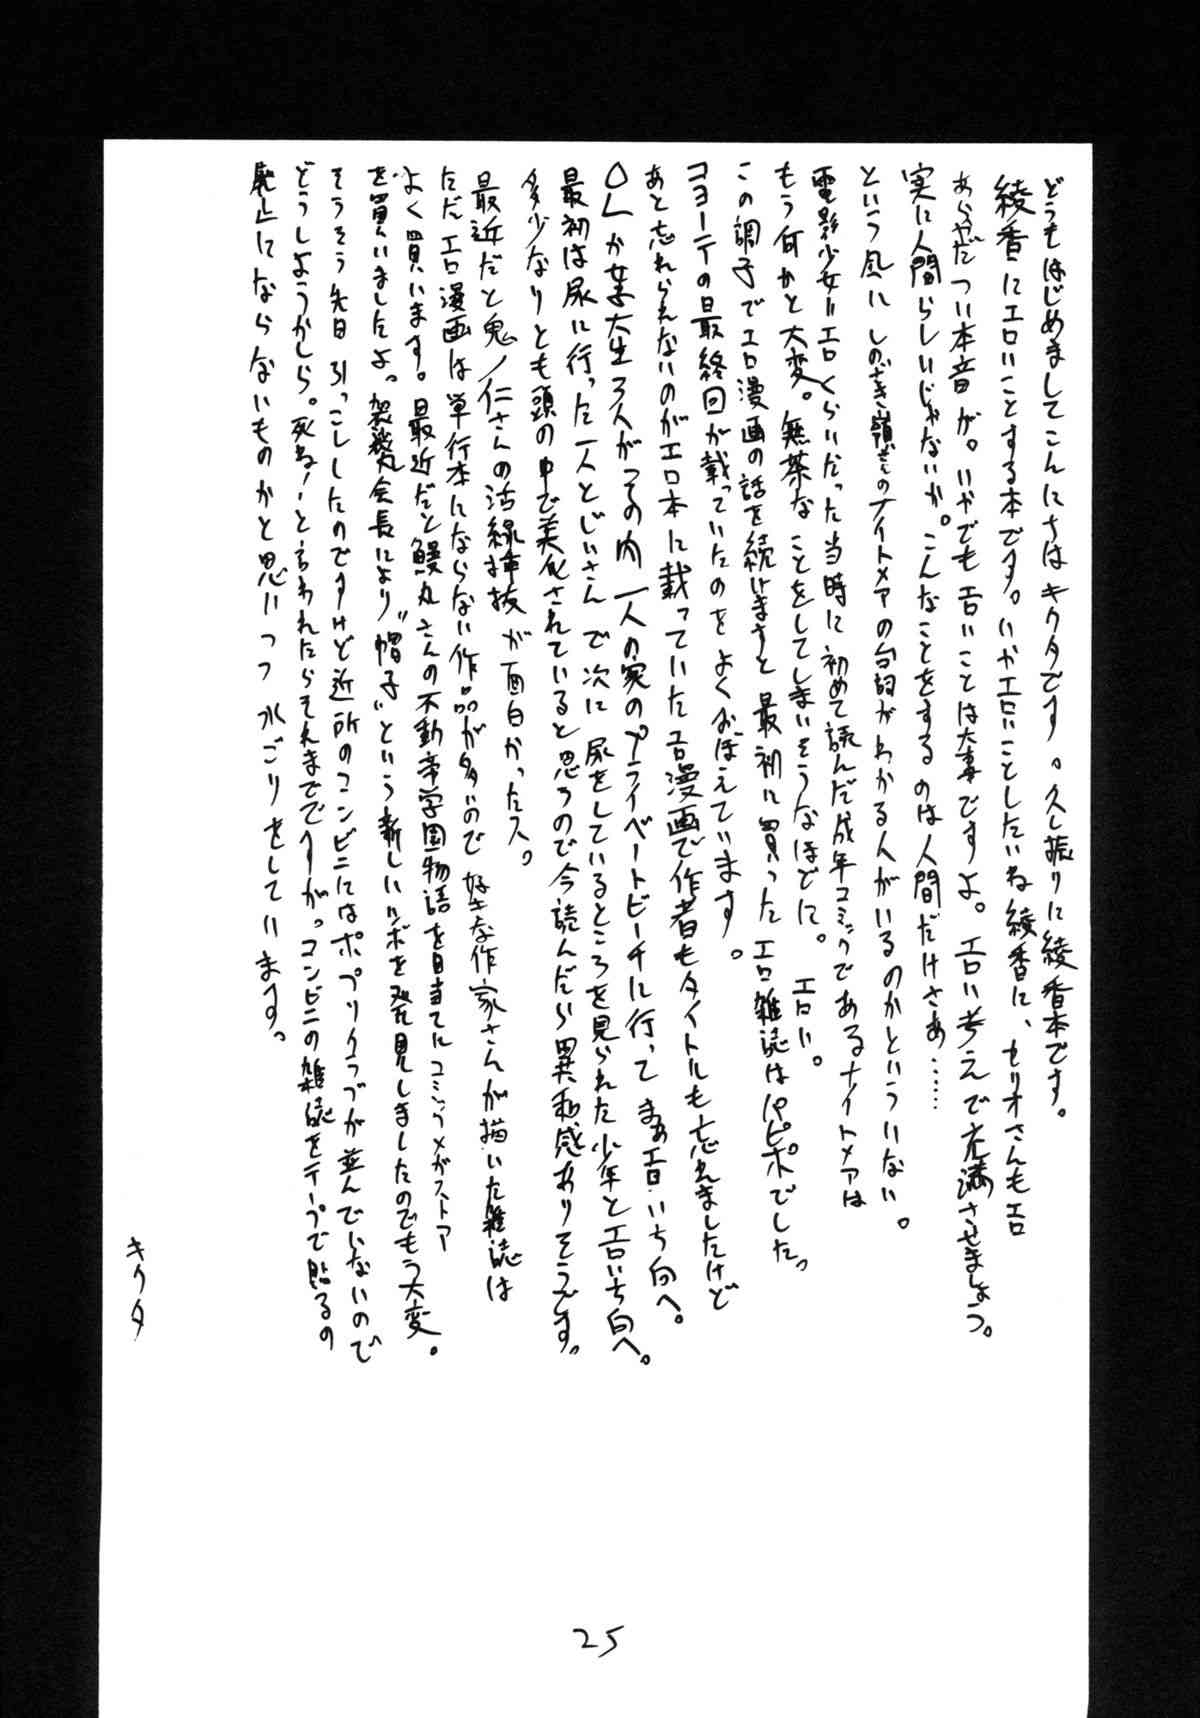 どうもはじめましてこんにちはキクタです。久し振りに綾香本です。
綾香にエロいことする本です。いやエロいことしたいね綾香に、セリオさんもエロ
あらやだつい本音が。いやでもエロいことは大事ですよ。エロい考えで充満させましょう。
実に人間らしいじゃないか。こんなことをするのは人間だけさあ……
という風に しのざき嶺さんのナイトメアの台詞がわかる人がいるのかというない。
電影少女＝エロくらいだった当時に 初めて読んだ成年コミックであるナイトメアは
もう何かと大変。無茶なことをしてしまいそうなほどに。 エロい。
この調子でエロ漫画の話を続けますと 最初に買ったエロ雑誌はパピポでした。
コヨーテの最終回が載っていたのをよくおぼえています。
あと忘れられないのがエロ本に載っていたエロ漫画で作者もタイトルも忘れましたけど
OLか女子大生3人がその内 一人の家のプライベートビーチに行って まあエロいち向へ。
最初は尿に行った一人とじいさん で次に 尿をしているところを見られた少年とエロいち向へ。
多少なりとも頭の中で美化されていると思うので今読んだら異和感ありそうです。
最近だと鬼ノ仁さんの活線挿抜 が面白かったス。
ただエロ漫画は単行本にならない作品が多いので 好きな作家さんが描いた雑誌は
よく買います。最近だと鰻丸さんの不動帝学園物語を目当てにコミックメガストア
を買いましたよ。袈裟丸会長により“帽子”という新しいツボを発見しましたのでもう大変。
そうそう先日 引っこししたのですけど近所のコンビニにはポプリクラブが並んでいないので
どうしようかしら。死ね!と言われたらそれまでですが。コンビニの雑誌をテープで貼るの
廃止にならないものかと思いつつ 水ごりをしています。
キクタ
25